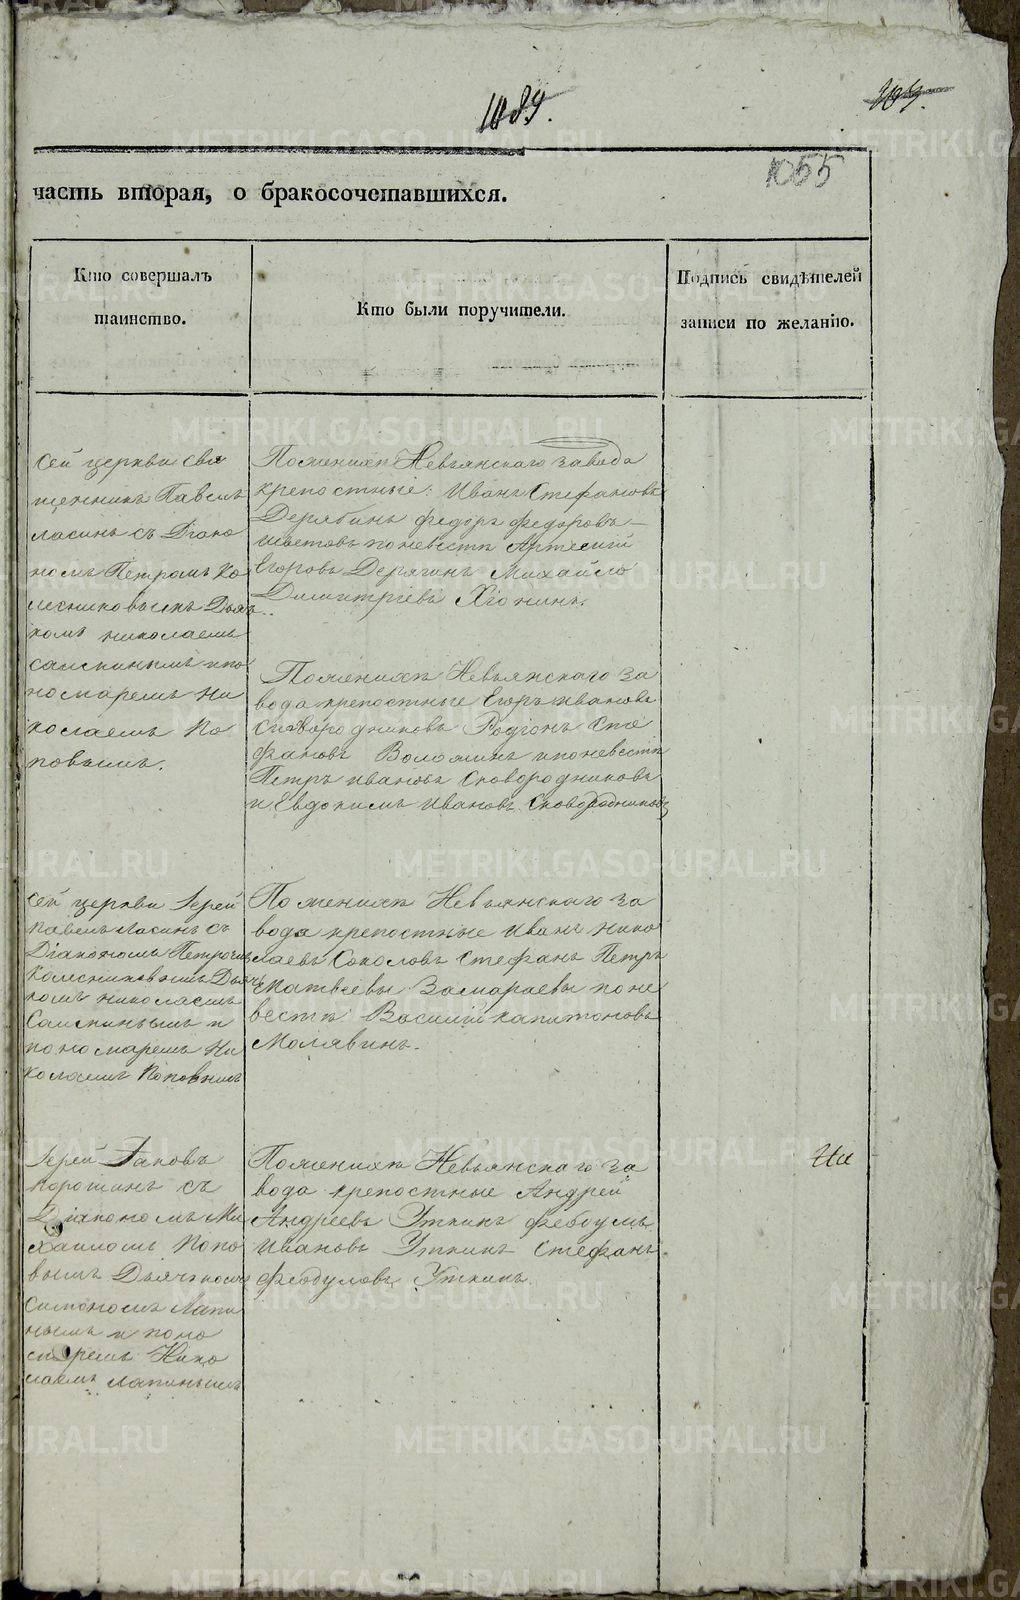 1089.
1055
часть вторая, о бракосочетавшихся.
Кто совершалъ
таинство.
Кто были поручители.
Подпись свидѣтелей
записи по желанію.
Сей церкви свя
щенникъ Павелъ
Ласинъ съ Діако
номъ Петромъ Ко
лесниковымъ Дьяч
комъ Николаемъ
Саипинымъ и по
номаремъ Ни
колаемъ По
повымъ.
По женихѣ Невьянскаго завода
крепостные: Иванъ Стефановъ
Дерябинъ Федоръ Федоровъ
по невестѣ Артемий
Егоровъ Дерягинъ Михайло
Димитріевъ Хіонинъ.
По женихѣ Невьянскаго за
вода крепостные Егоръ Ивановъ
Сковородниковъ Родіонъ Сте
фановъ Воложинъ и по невестѣ
Петръ Ивановъ Сковородниковъ
и Евдокимъ Ивановъ Сковородниковъ
Сей церкви Іерей
Павелъ Ласинъ съ
Діакономъ Петромъ
Колесниковымъ Дьяч
комъ Николаемъ
Саипинымъ и
пономаремъ Ни
колаемъ Поповымъ
По женихѣ Невьянскаго за
вода крепостные Иванъ Нико
лаевъ Соколовъ Стефанъ Петръ
Матвеевы Замараевы по не
вестѣ Василий Капитоновъ
Молявинъ.
Іерей Іаковъ
Порошинъ съ
Діакономъ Ми
хаиломъ Попо
вымъ Дьячкомъ
Симономъ Лапи
нымъ и поно
маремъ Нико
лаемъ Лапинымъ
По женихѣ Невьянскаго за
вода крепостные Андрей
Андреевъ Уткинъ Феодулъ
Ивановъ Уткинъ Стефанъ
Феодуловъ Уткинъ.
METRIKI.GASO-URAL.RU